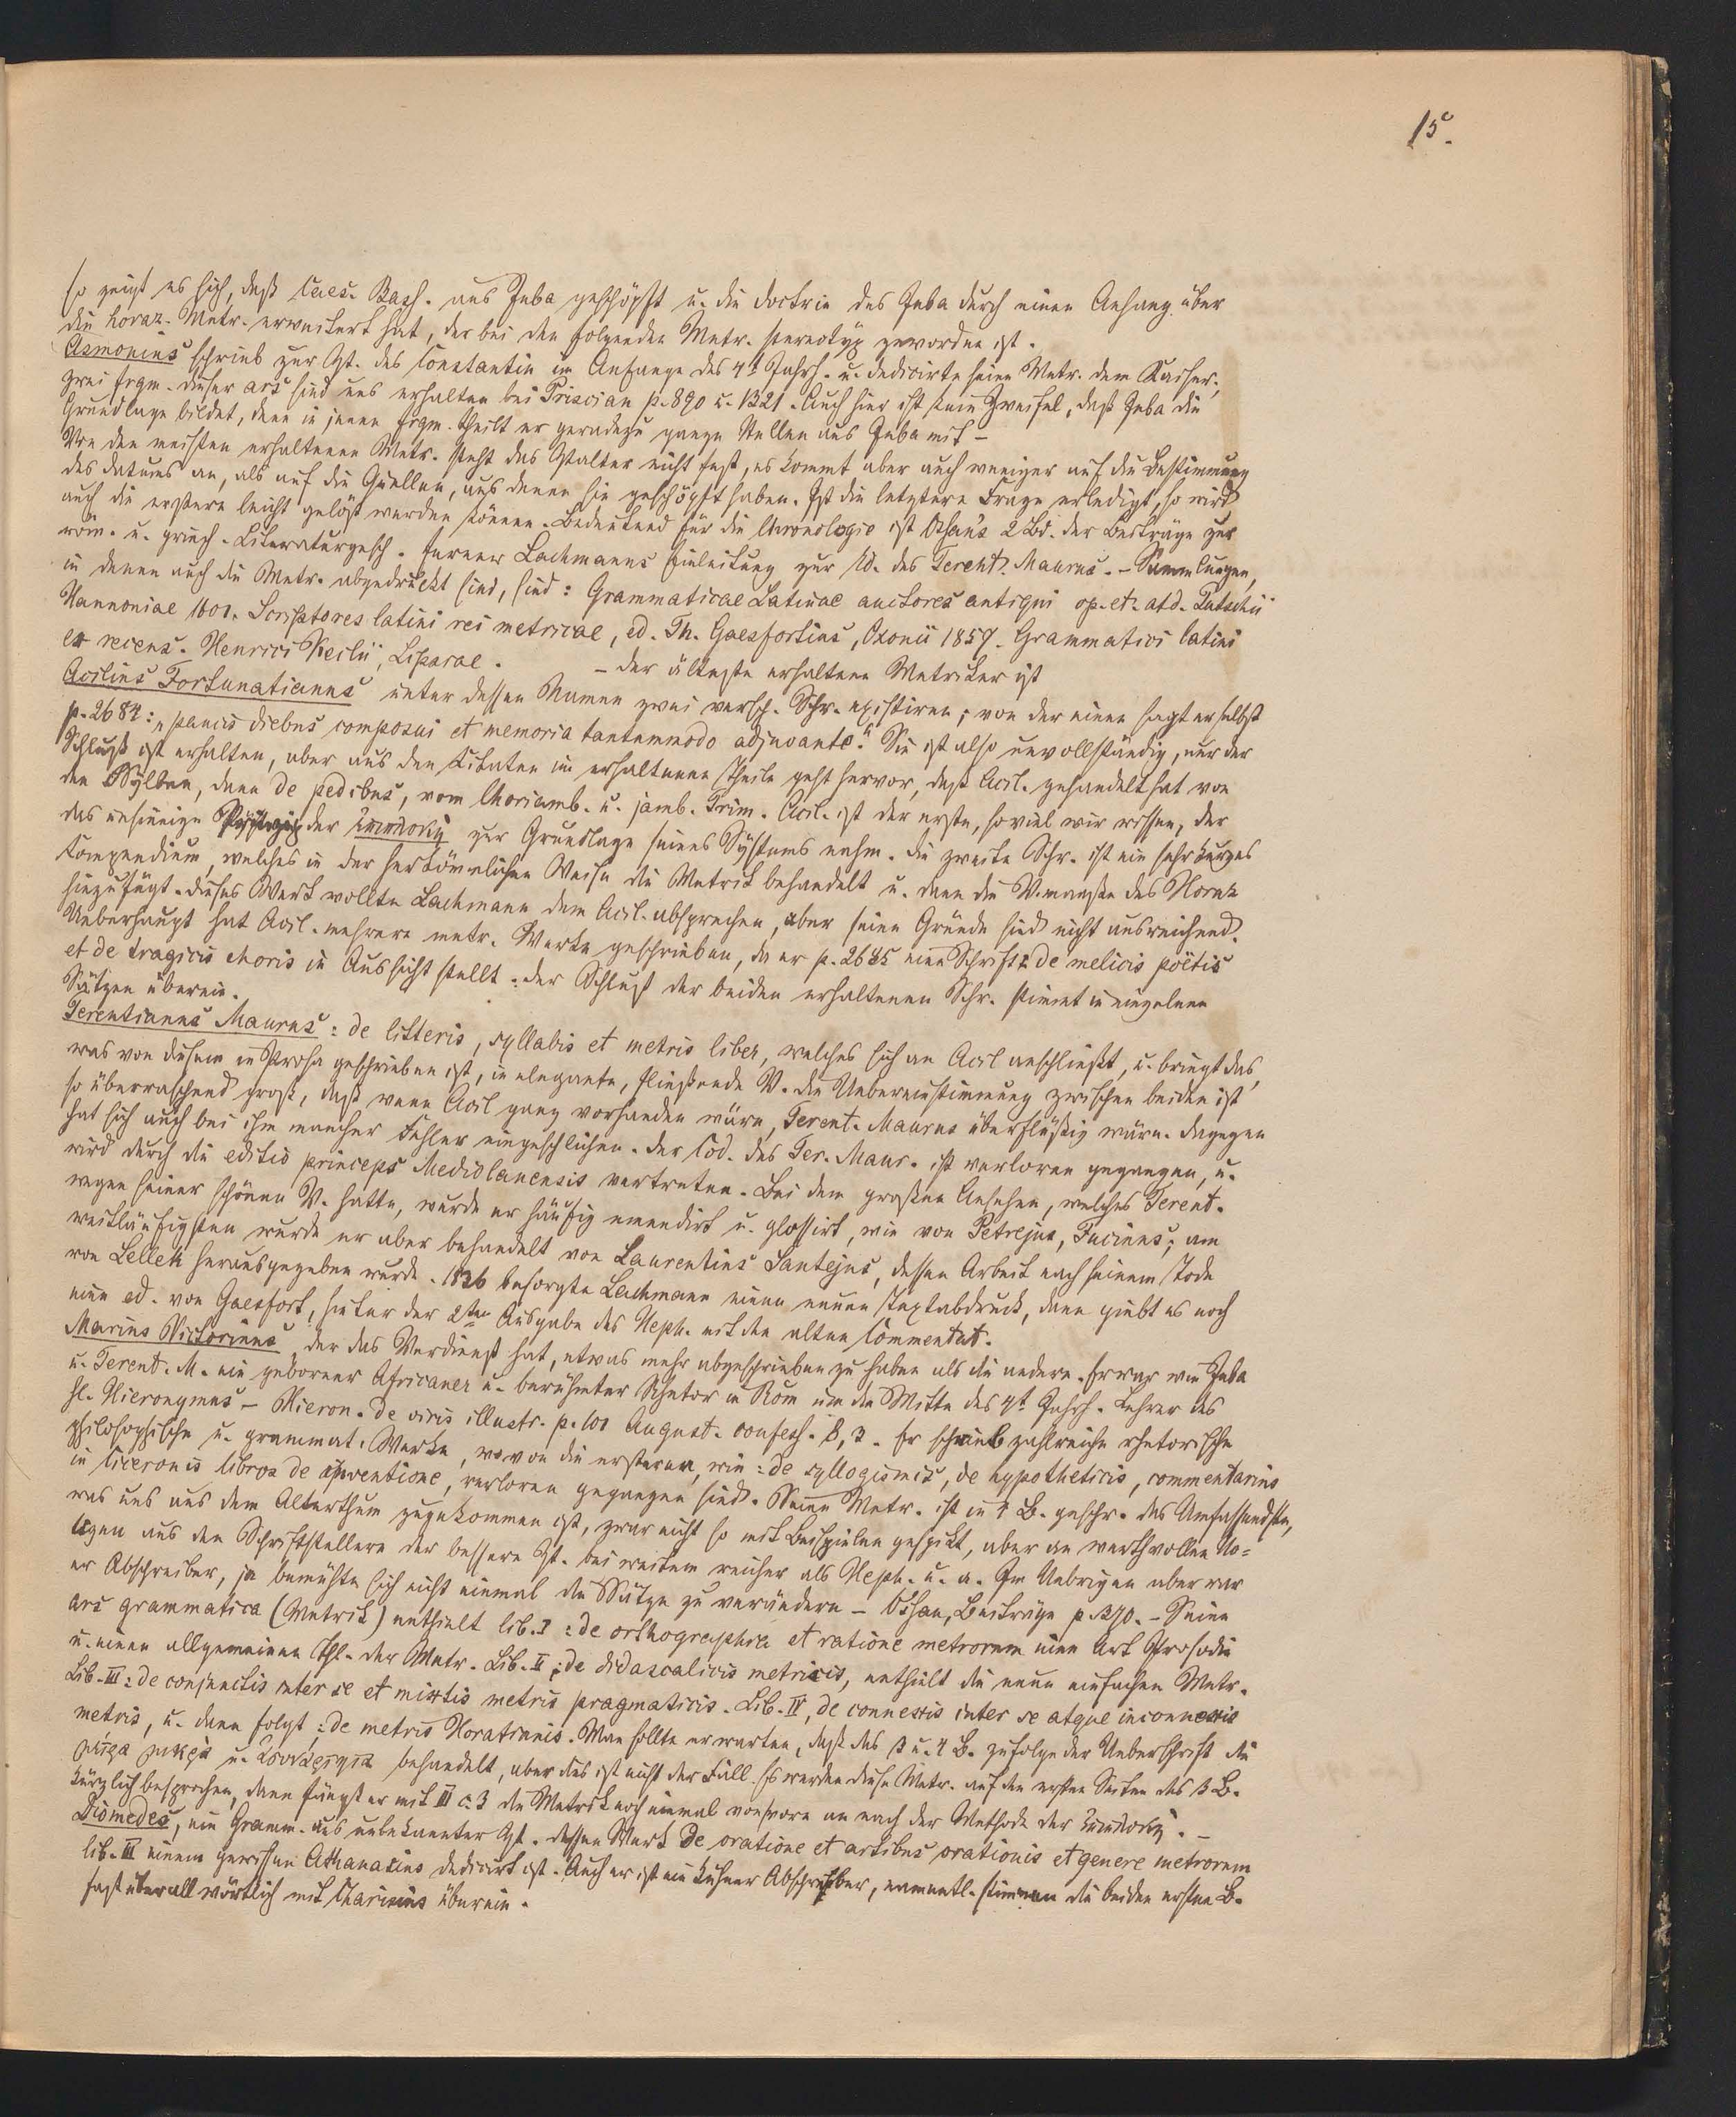 15.
so zeigt es sich, daß Caes. Bass. aus Juba geschöpft u. die doctrin des Juba durch einen Anhang über
die horaz. Metr. erweitert hat, der bei den folgenden Metr. stereotyp geworden ist.
Asmonius schrieb zur Zt. des Constantin im Anfange des 4t Jahrh. u. dedicirte seine Metr. dem Kaiser;
zwei frgm. dieser ars sind uns erhalten bei Priscian p. 890 u. 1321. Auch hier ist kein Zweifel, daß Juba die
Grundlage bildet, denn in jenen frgm. theilt er geradezu ganze Stellen aus Juba mit –
Von den meisten erhaltenen Metr. steht das Ztalter nicht fest, es kommt aber auch weniger auf die Bestimmung
des datums an, als auf die Quellen, aus denen sie geschöpft haben. Ist die letztere Frage erledigt, so wird
auch die erstere leicht gelöst werden können. Bedeutend für die Chronologie ist Osan's 2 Bd. der Beiträge zur
röm. u. griech. Literaturgesch. ferner Lachmanns Einleitung zur Ed. des Terent. Maurus. – Sammlungen,
in denen auch die Metr. abgedruckt sind, sind: Grammaticae Latinae auctores antiqui op. et. atd. Putschii
Hannoniae 1601. Scriptores latini rei metricae, ed. Th. Gaesfortius, Oxonii 1857. Grammatici latini
ex recens. Henrici Keilii, Lipsrae. – der älteste erhaltene Metriker ist
Acilius Fortunatianus unter dessen Namen zwei versch. Schr. existiren; von der einen sagt er selbst
p. 2684: „paucis diebus composui et memoria tantummodo adjuvante." Sie ist also unvollständig, nur der
Schluß ist erhalten, aber aus den Citaten im erhaltenen Theile geht hervor, daß Acil. gehandelt hat von
den Sylben, dann de pedibus, vom Choriamb. u. jamb. Trim. Acil. ist der erste, soviel wir wissen, der
das unsinnige der ἐπιπλοκή zur Grundlage seines Systems nahm. die zweite Schr. ist ein sehr kurzes
Kompendium, welches in der herkömmlichen Weise die Metrik behandelt u. dann die V.maaße des Horaz
hinzufügt. dieses Werk wollte Lachmann dem Acil. absprechen, aber seine Gründe sind nicht ausreichend.
Ueberhaupt hat Acil. mehrere metr. Werke geschrieben, da er p. 2685 eine Schrift: de melicis poëtis
et de tragicis choris in Aussicht stellt. der Schluß der beiden erhaltenen Schr. stimmt in einzelnen
Sätzen überein.
Terentianus Maurus: de litteris, syllabis et metris liber, welches sich an Acil anschließt, u. bringt das,
was von diesem in Prosa geschrieben ist, in elegante, fließende V. die Uebereinstimmung zwischen beiden ist
so überraschend groß, daß wenn Acil ganz vorhanden wäre, Terent. Maurus überflüßig wäre. dagegen
hat sich auch bei ihm mancher Fehler eingeschlichen. der Cod. des Ter. Maur. ist verloren gegangen, u.
wird durch die editio princeps Mediolanensis vertreten. Bei dem großen Ansehen, welches Terent.
wegen seiner schönen V. hatte, wurde er häufig emendirt u. glossirt, wie von Petrejus, Fucinus; am
weitläufigsten wurde er aber behandelt von Laurentius Santejus, dessen Arbeit nach seinem Tode
von Lellek herausgegeben wurde. 1836 besorgte Lachmann einen neuen Textabdruck, dann giebt es noch
eine ed. von Gaesfort, hinter der 2ten Ausgabe des Heph. mit den alten Commentat.
Marius Victorinus, der das Verdienst hat, etwas mehr abgeschrieben zu haben als die andern. Er war wie Juba
u. Terent. M. ein geborner Africaner u. berühmter Rhetor in Rom um die Mitte des 4t Jahrh. Lehrer des
hl. Hieronymus – Hieron. de viris illustr. p. 101 August. confess. 8, 3. Er schrieb zahlreiche rhetorische
philosophische u. grammat. Werke, wovon die ersteren, wie: de syllogismis, de hypotheticis, commentarius
in Ciceronis libros de inventione, verloren gegangen sind. Seine Metr. ist in 4 B. geschr. das Umfassendste,
was uns aus dem Alterthum zugekommen ist, zwar nicht so mit Beispielen gespickt, aber an werthvollen No=
tizen aus den Schriftstellern der bessern Zt. bei weitem reicher als Heph. u. a. Im Uebrigen aber war
er Abschreiber, ja bemühte sich nicht einmal die Sätze zu verändern – Osan, Beiträge p. 370. – Seine
ars grammatica (Metrik) enthielt lib. I: de orthographia et ratione metrorum eine Art Prosodie
u. einen allgemeinen Thl. der Metr. Lib. II: de didascalicis metricis, enthielt die neun einfachen Metr.
Lib. III: de conjunctis inter se et mixtis metris pragmaticis. Lib. IV, de connexis inter se atque inconnexis
metris, u. dann folgt: de metris Horatianis. Man sollte erwarten, daß das 3 u. 4 B. zufolge der Ueberschrift die
μέτρα μικτά u. ἀσυνάρτητα behandelt, aber dies ist nicht der Fall. Es werden diese Metr. auf den ersten Seiten des 3 B.
kürzlich besprochen, dann fängt er mit III c. 3 die Metrik noch einmal von vorn an nach der Methode der ἐπιπλοκή. –
Diomedes, ein Gramm. aus unbekannter Zt. dessen Werk de oratione et artibus orationis et genere metrorum
lib. III einem gewissen Athanasius dedicirt ist. Auch er ist ein kühner Abschreiber, namentl. stimmen die beiden ersten B.
fast überall wörtlich mit Charisius überein.